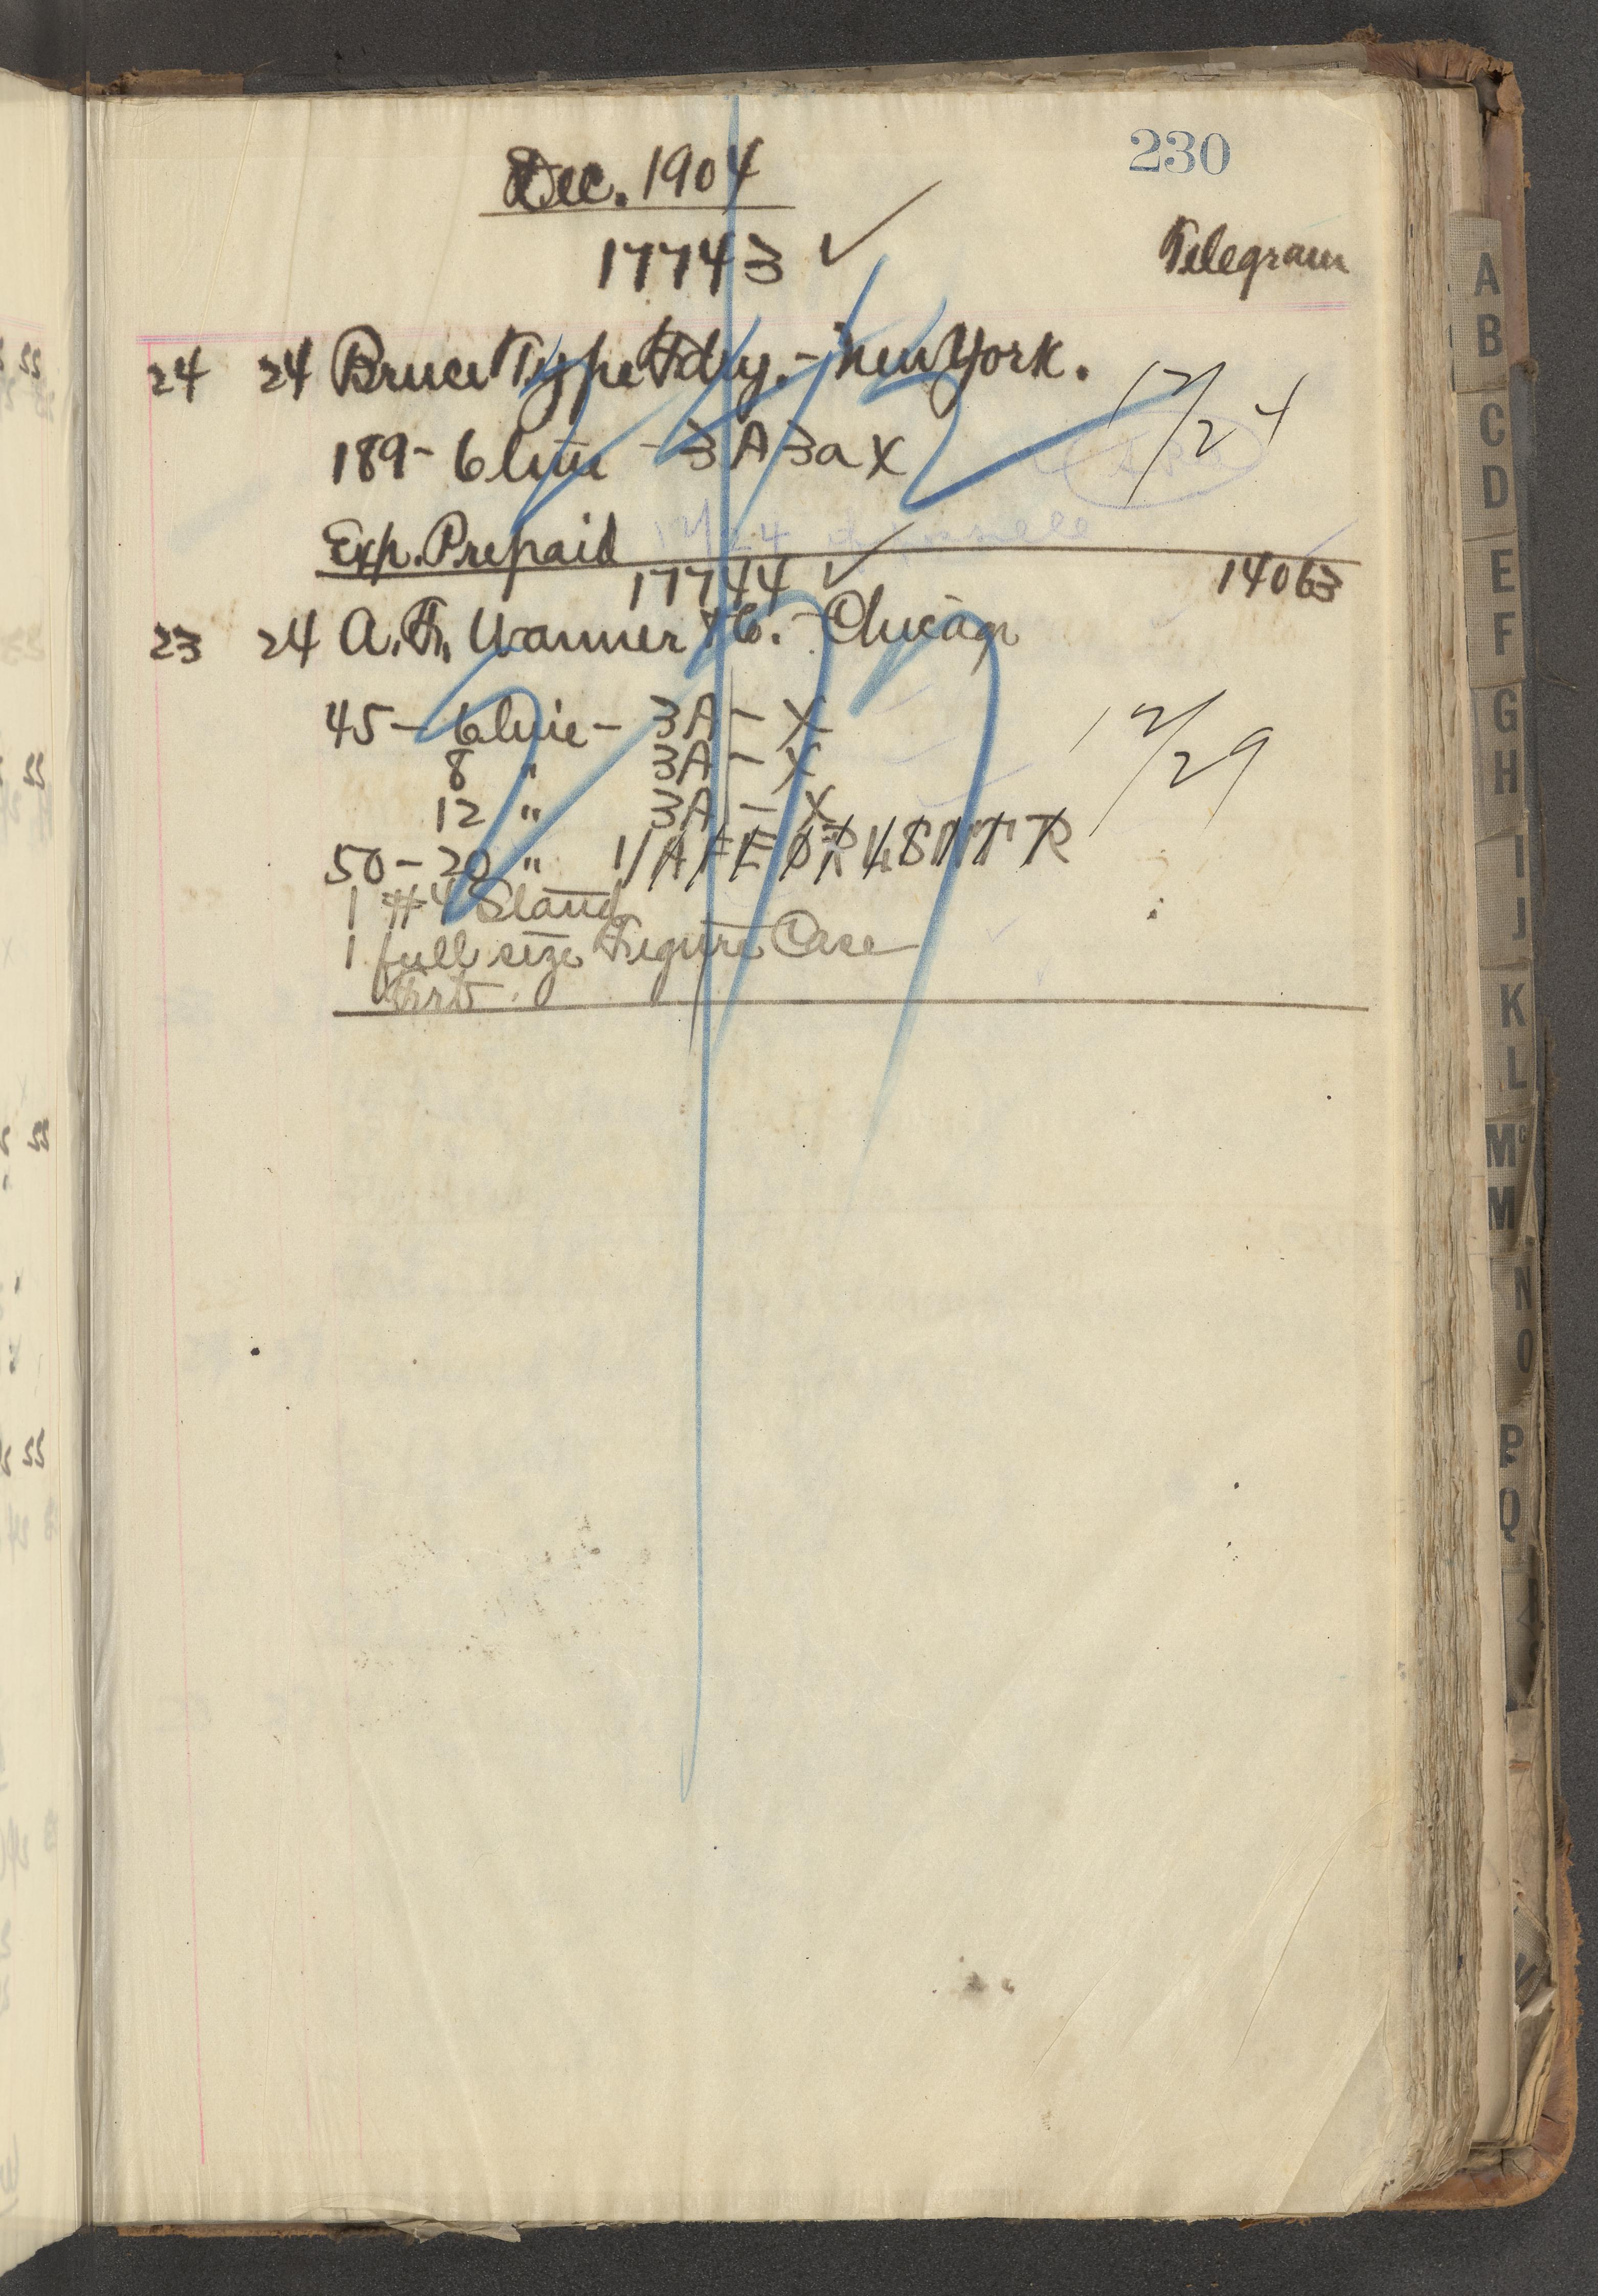 230
Dec. 1904
17743 ✓
Telegram
24 24 Bruce Type Fdry. - New York.
12/24
189 - 6 line - 3A 3a X
Exp. Prepaid
17744 ✓
14063
23 24 A. F. Wanner & Co. - Chicago
45 - 6 line - 3A - X
8 " 3A - X
12/29
12 " 3A - X
50 - 20 " 1/ A F E O R L S N T R
1 #4 Stand
1 full size Figure Case
Frt.
A
B
C
D
E
F
G
H
I
J
K
L
Mc
M
N
O
P
Q